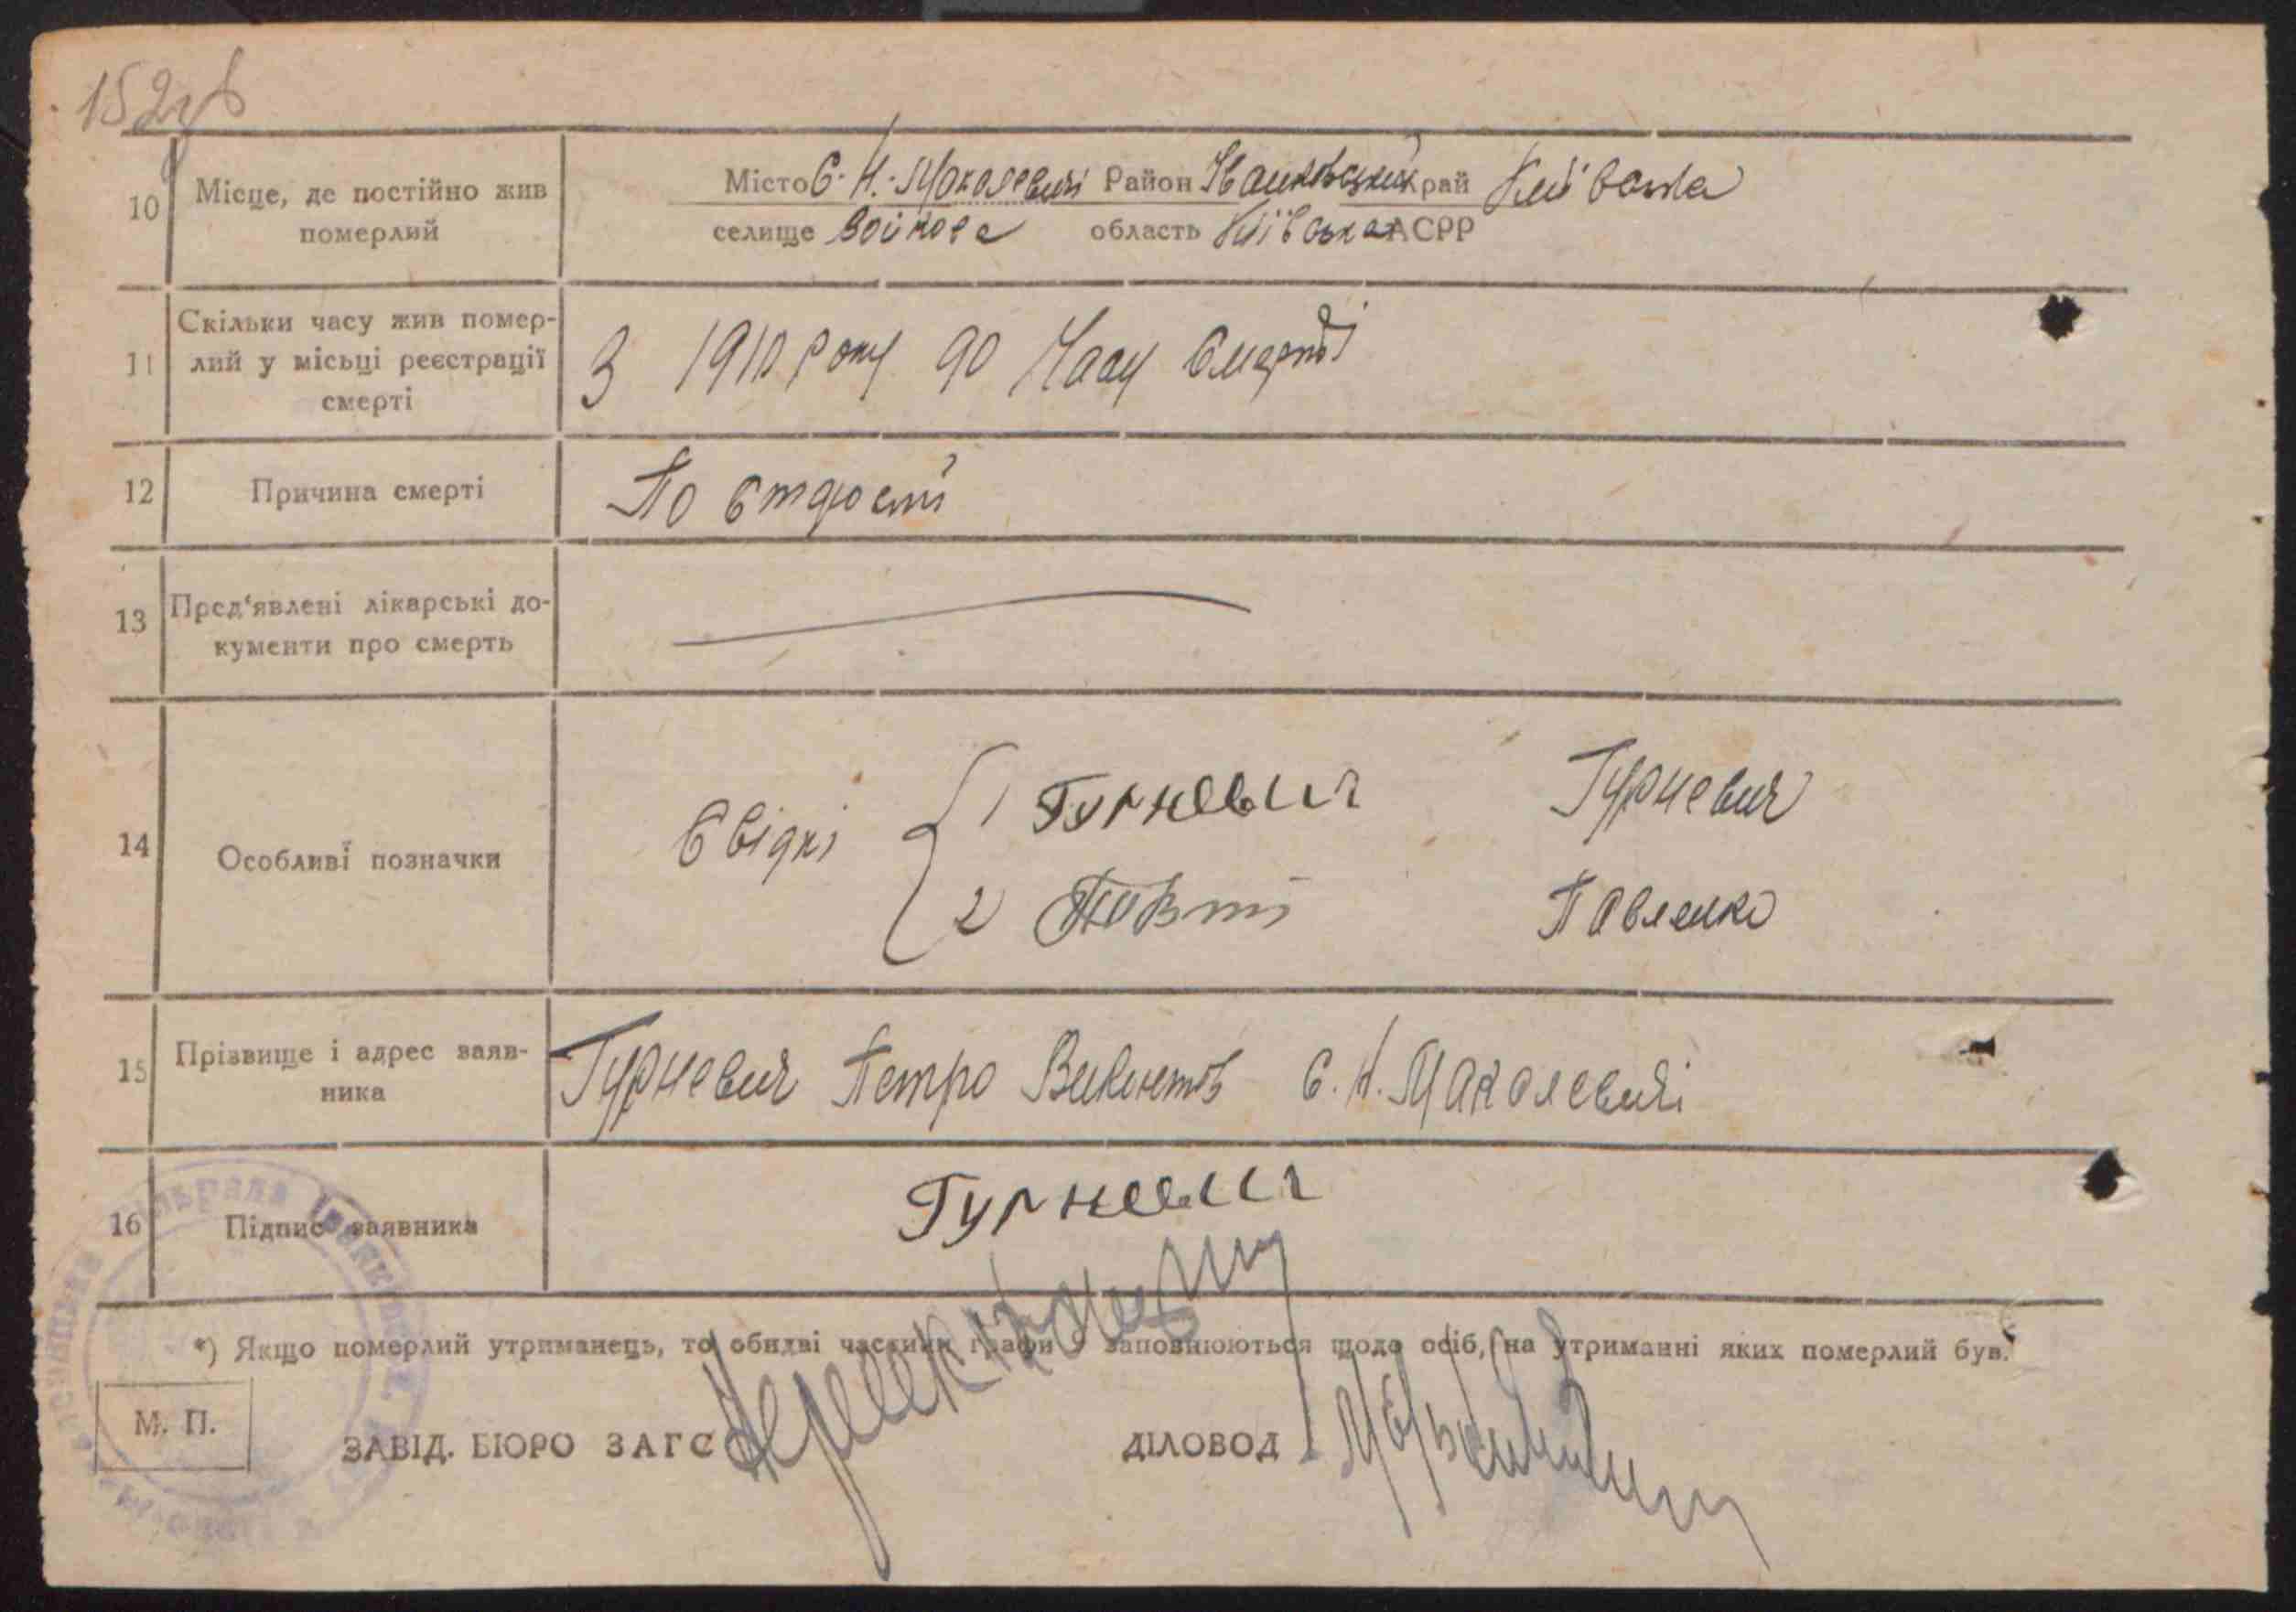 152зв
10 Місце, де постійно жив померлий
Місто С. Н.-Макалевичі Район Іванковський край Київська
селище Войкова область Київська АСРР
11 Скільки часу жив помер-
лий у місьці реєстрації
смерті
З 1910 року до Часу Смерті
12 Причина смерті
По старості
13 Пред'явлені лікарські до-
кументи про смерть
14 Особливі позначки
Свідкі
1 Гурневич Гурневич
2 Павленко
15 Прізвище і адрес заяв-
ника
Гурневич Петро Викентов с. Н. Макалевичі
16 Підпис заявника
Гурневич
*) Якщо померлий утриманець, то обидві частини графи 9 заповнюються щодо осіб, на утриманні яких померлий був.
М. П.
ЗАВІД. БЮРО ЗАГС
ДІЛОВОД